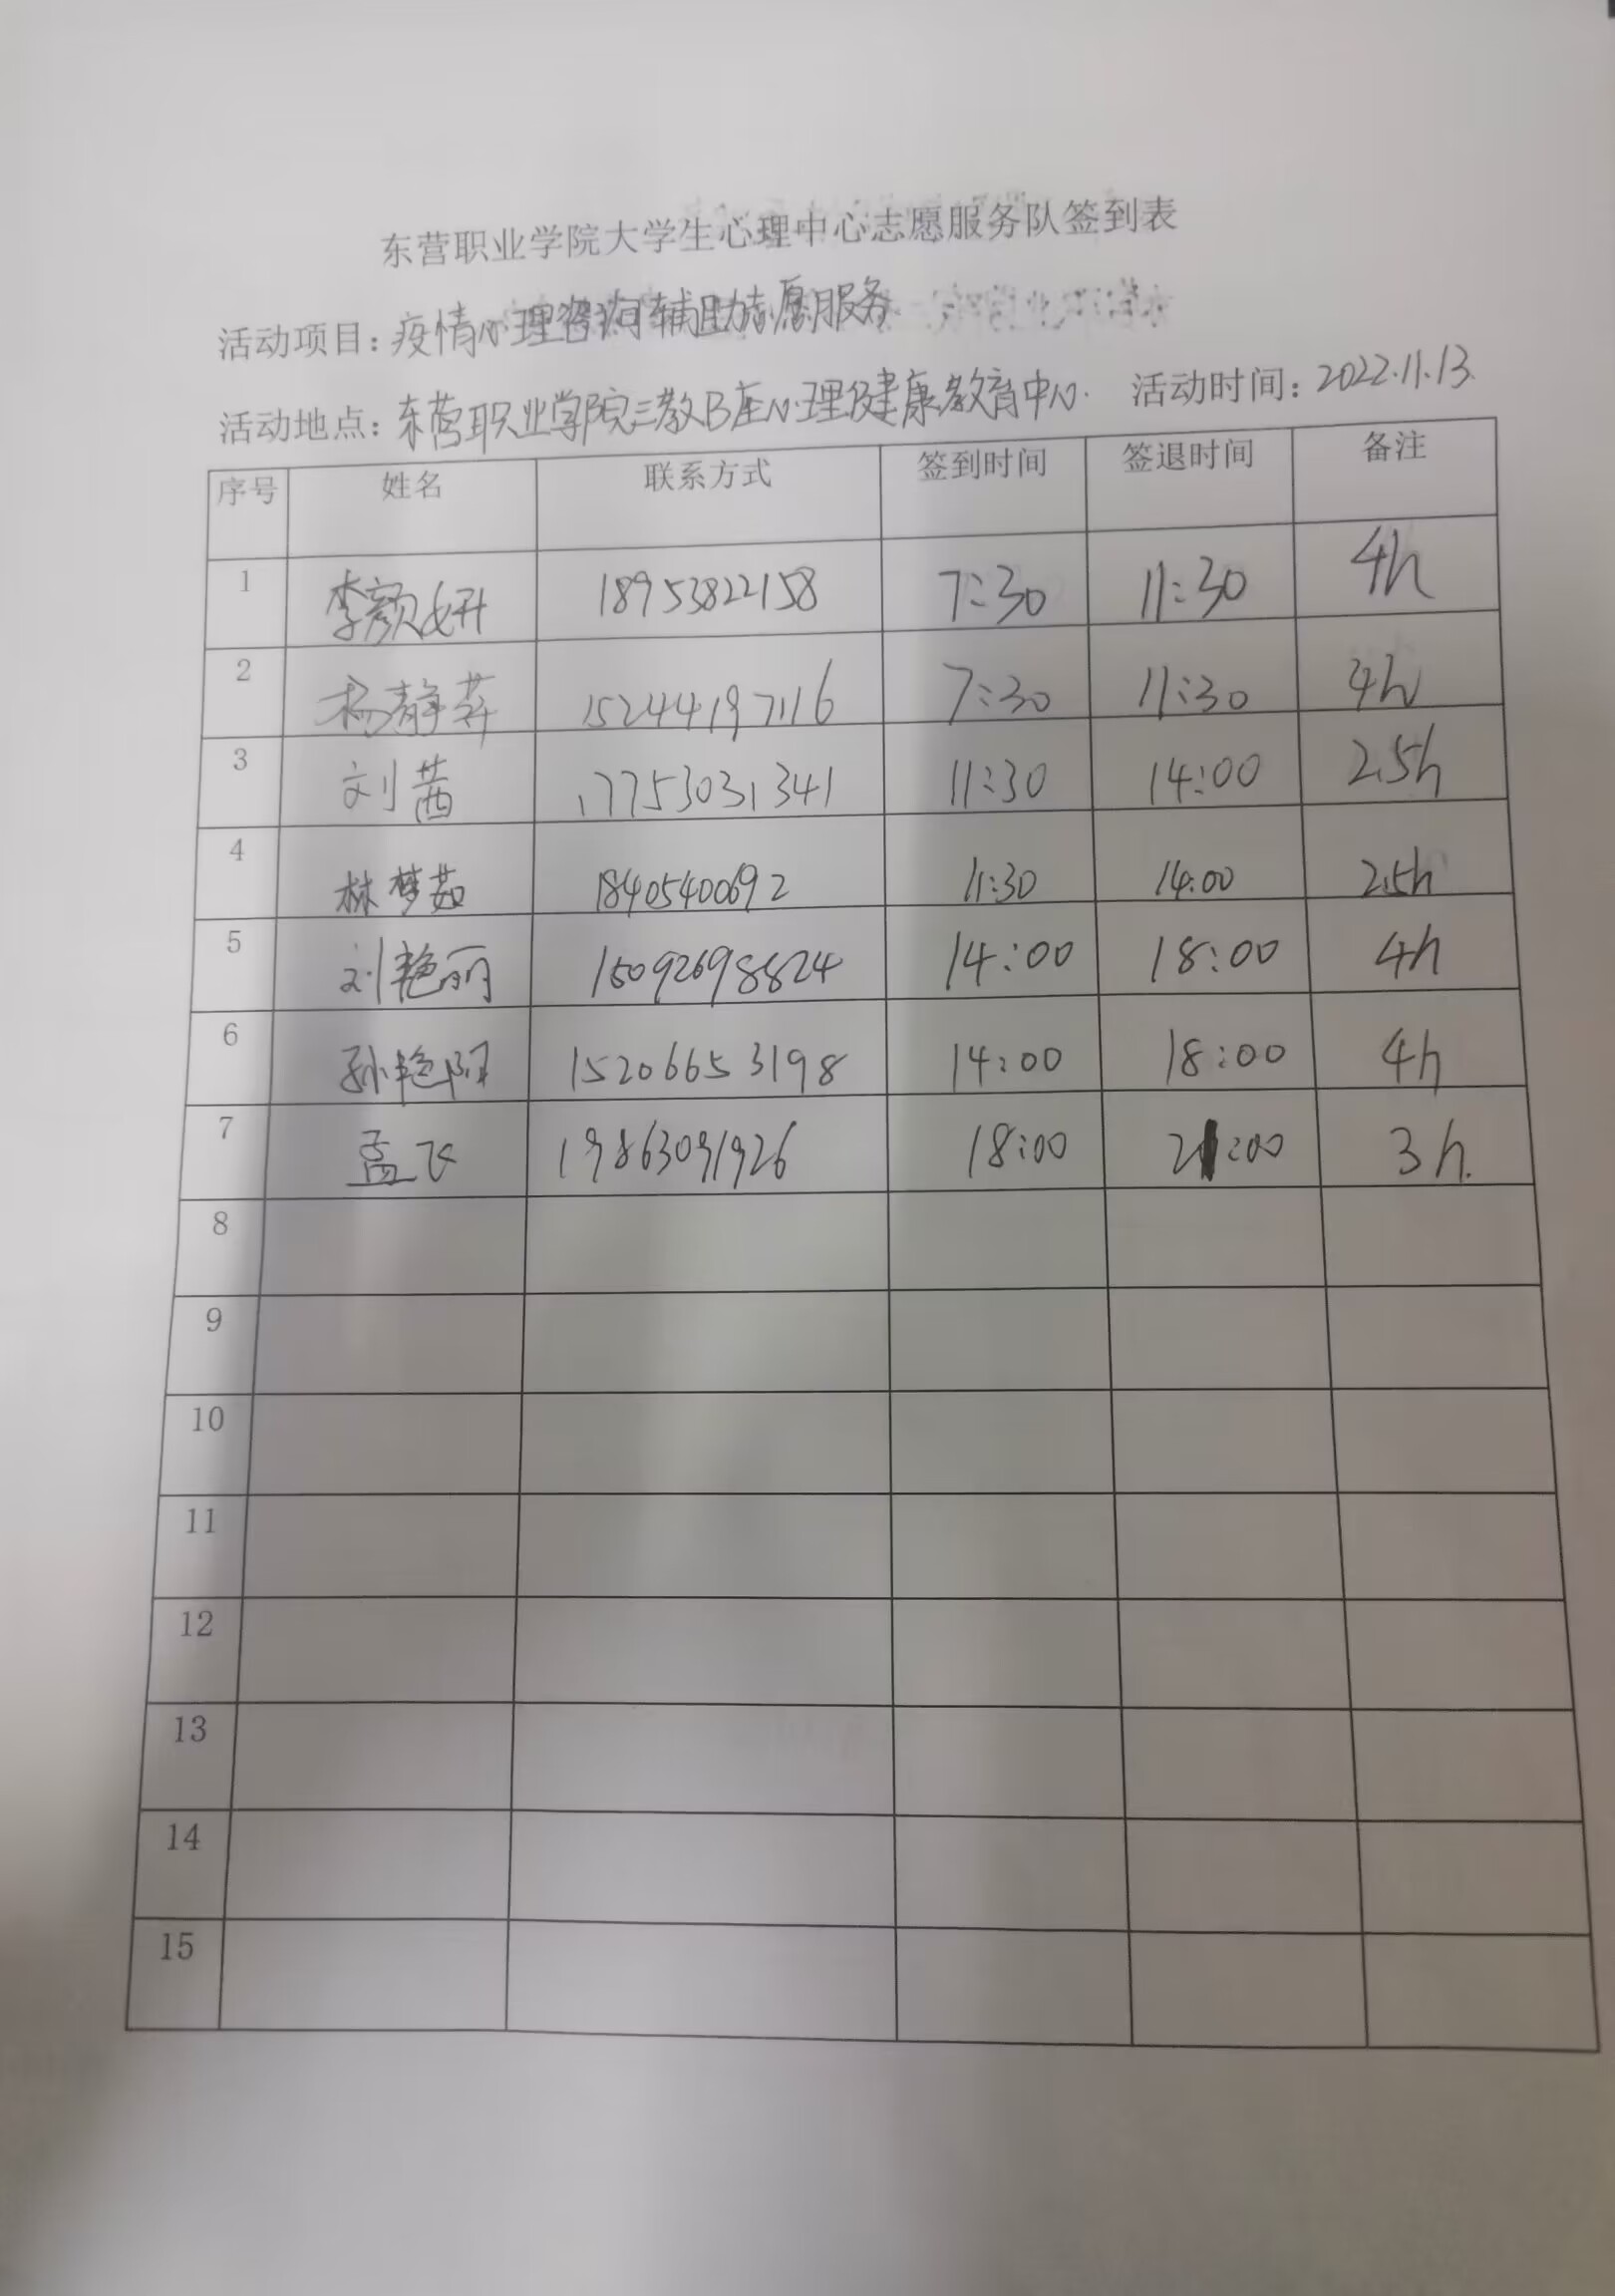 东营职业学院大学生心理中心志愿服务队签到表
活动项目：疫情心理咨询辅助志愿服务
活动地点：东营职业学院三教B座心理健康教育中心. 活动时间：2022.11.13.
序号 姓名 联系方式 签到时间 签退时间 备注
1 李颜妍 18953822158 7:30 11:30 4h
2 杨静 15244197116 7:30 11:30 4h
3 刘茜 17753031341 11:30 14:00 2.5h
4 林梦茹 18405400692 11:30 14:00 2.5h
5 刘艳丽 15092698824 14:00 18:00 4h
6 孙艳阳 15206653198 14:00 18:00 4h
7 孟飞 19863091926 18:00 21:00 3h.
8
9
10
11
12
13
14
15